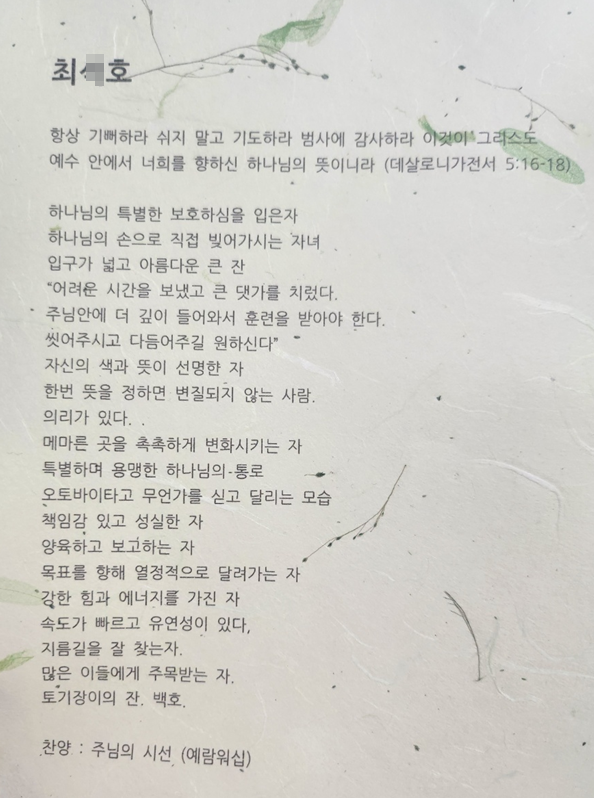 최 호
항상 기뻐하라 쉬지 말고 기도하라 범사에 감사하라 이것이 그리스도
예수 안에서 너희를 향하신 하나님의 뜻이니라 (데살로니가전서 5:16-18)
하나님의 특별한 보호하심을 입은자
하나님의 손으로 직접 빚어가시는 자녀
입구가 넓고 아름다운 큰 잔
“어려운 시간을 보냈고 큰 댓가를 치렀다.
주님안에 더 깊이 들어와서 훈련을 받아야 한다.
씻어주시고 다듬어주길 원하신다”
자신의 색과 뜻이 선명한 자
한번 뜻을 정하면 변질되지 않는 사람.
의리가 있다.
메마른 곳을 촉촉하게 변화시키는 자
특별하며 용맹한 하나님의 통로
오토바이타고 무언가를 싣고 달리는 모습
책임감 있고 성실한 자
양육하고 보고하는 자
목표를 향해 열정적으로 달려가는 자
강한 힘과 에너지를 가진 자
속도가 빠르고 유연성이 있다,
지름길을 잘 찾는자.
많은 이들에게 주목받는 자.
토기장이의 잔. 백호.
찬양 : 주님의 시선 (예람워십)